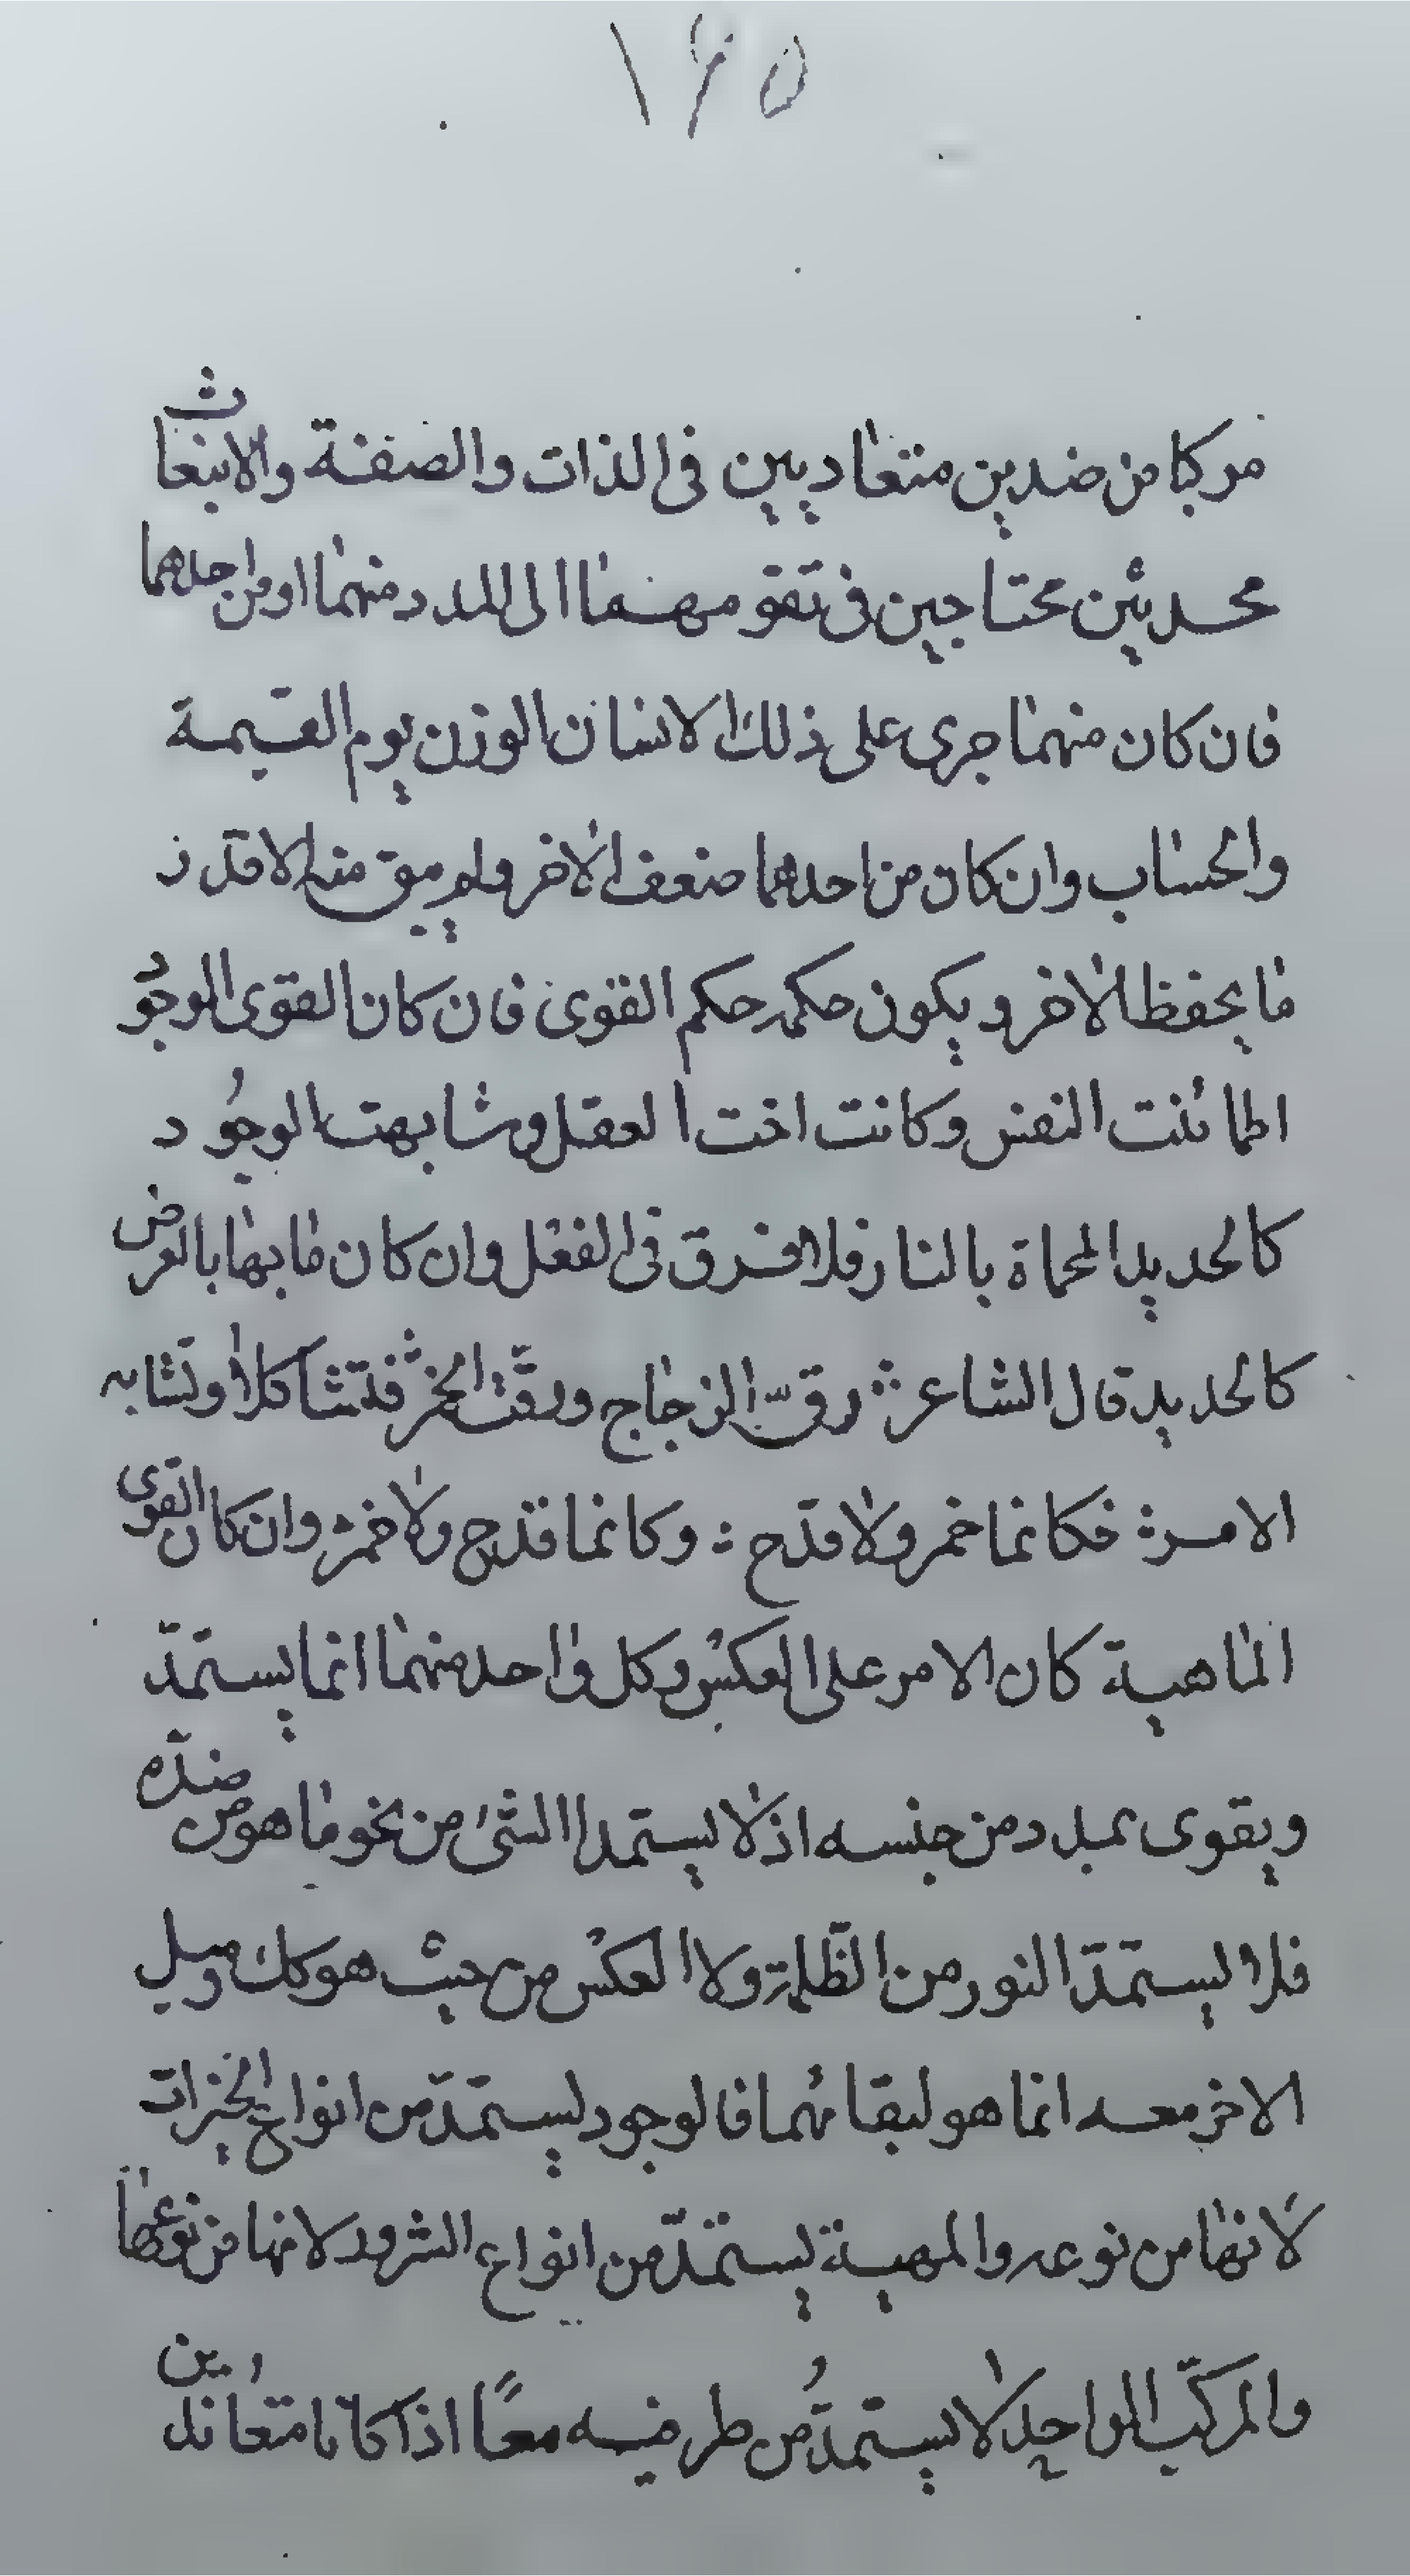 ١٢٥
مركبا من ضدين متعاديين فى الذات والصفة والانبعاث
محدثين محتاجين فى تقومهما الى المدد منهما او من احدهما
فان كان منهما جرى على ذلك الانسان الوزن يوم القيمة
والحساب وان كان من احدهما ضعف الاخر ولم يبق منه الا قدر
ما يحفظ الاخر ويكون حكمه حكم القوى فان كان القوى الوجود
اطمائنت النفس وكانت اخت العقل وشابهت الوجود
كالحديد المحماة بالنار فلا فرق فى الفعل وان كان ما بها بالعرض
كالحديد قال الشاعر ∴ رقّ الزجاج ورقّت الخمر ∴ فتشاكلا وتشابه
الامر ∴ فكانما خمر ولا قدح ∴ وكانما قدح ولا خمر ∴ وان كان القوى
الماهية كان الامر على العكس وكل واحد منهما انما يستمدّ
ويقوى بمدد من جنسه اذ لا يستمد الشئ من نحو ما هو من ضدّه
فلا يستمدّ النور من الظّلمة ولا العكس من حيث هو كك وميل
الاخر معه انما هو لبقائهما فالوجود يستمدّ من انواع الخيرات
لانها من نوعه والمهية يستمدّ من انواع الشرور لانها من نوعها
والمركّب الواحد لا يستمدُّ من طرفيه معًا اذا كانا متعاندين